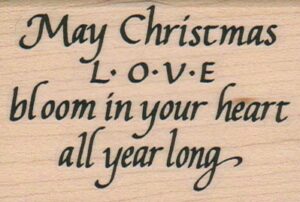 May Christmas
L·O·V·E
bloom in your heart
all year long